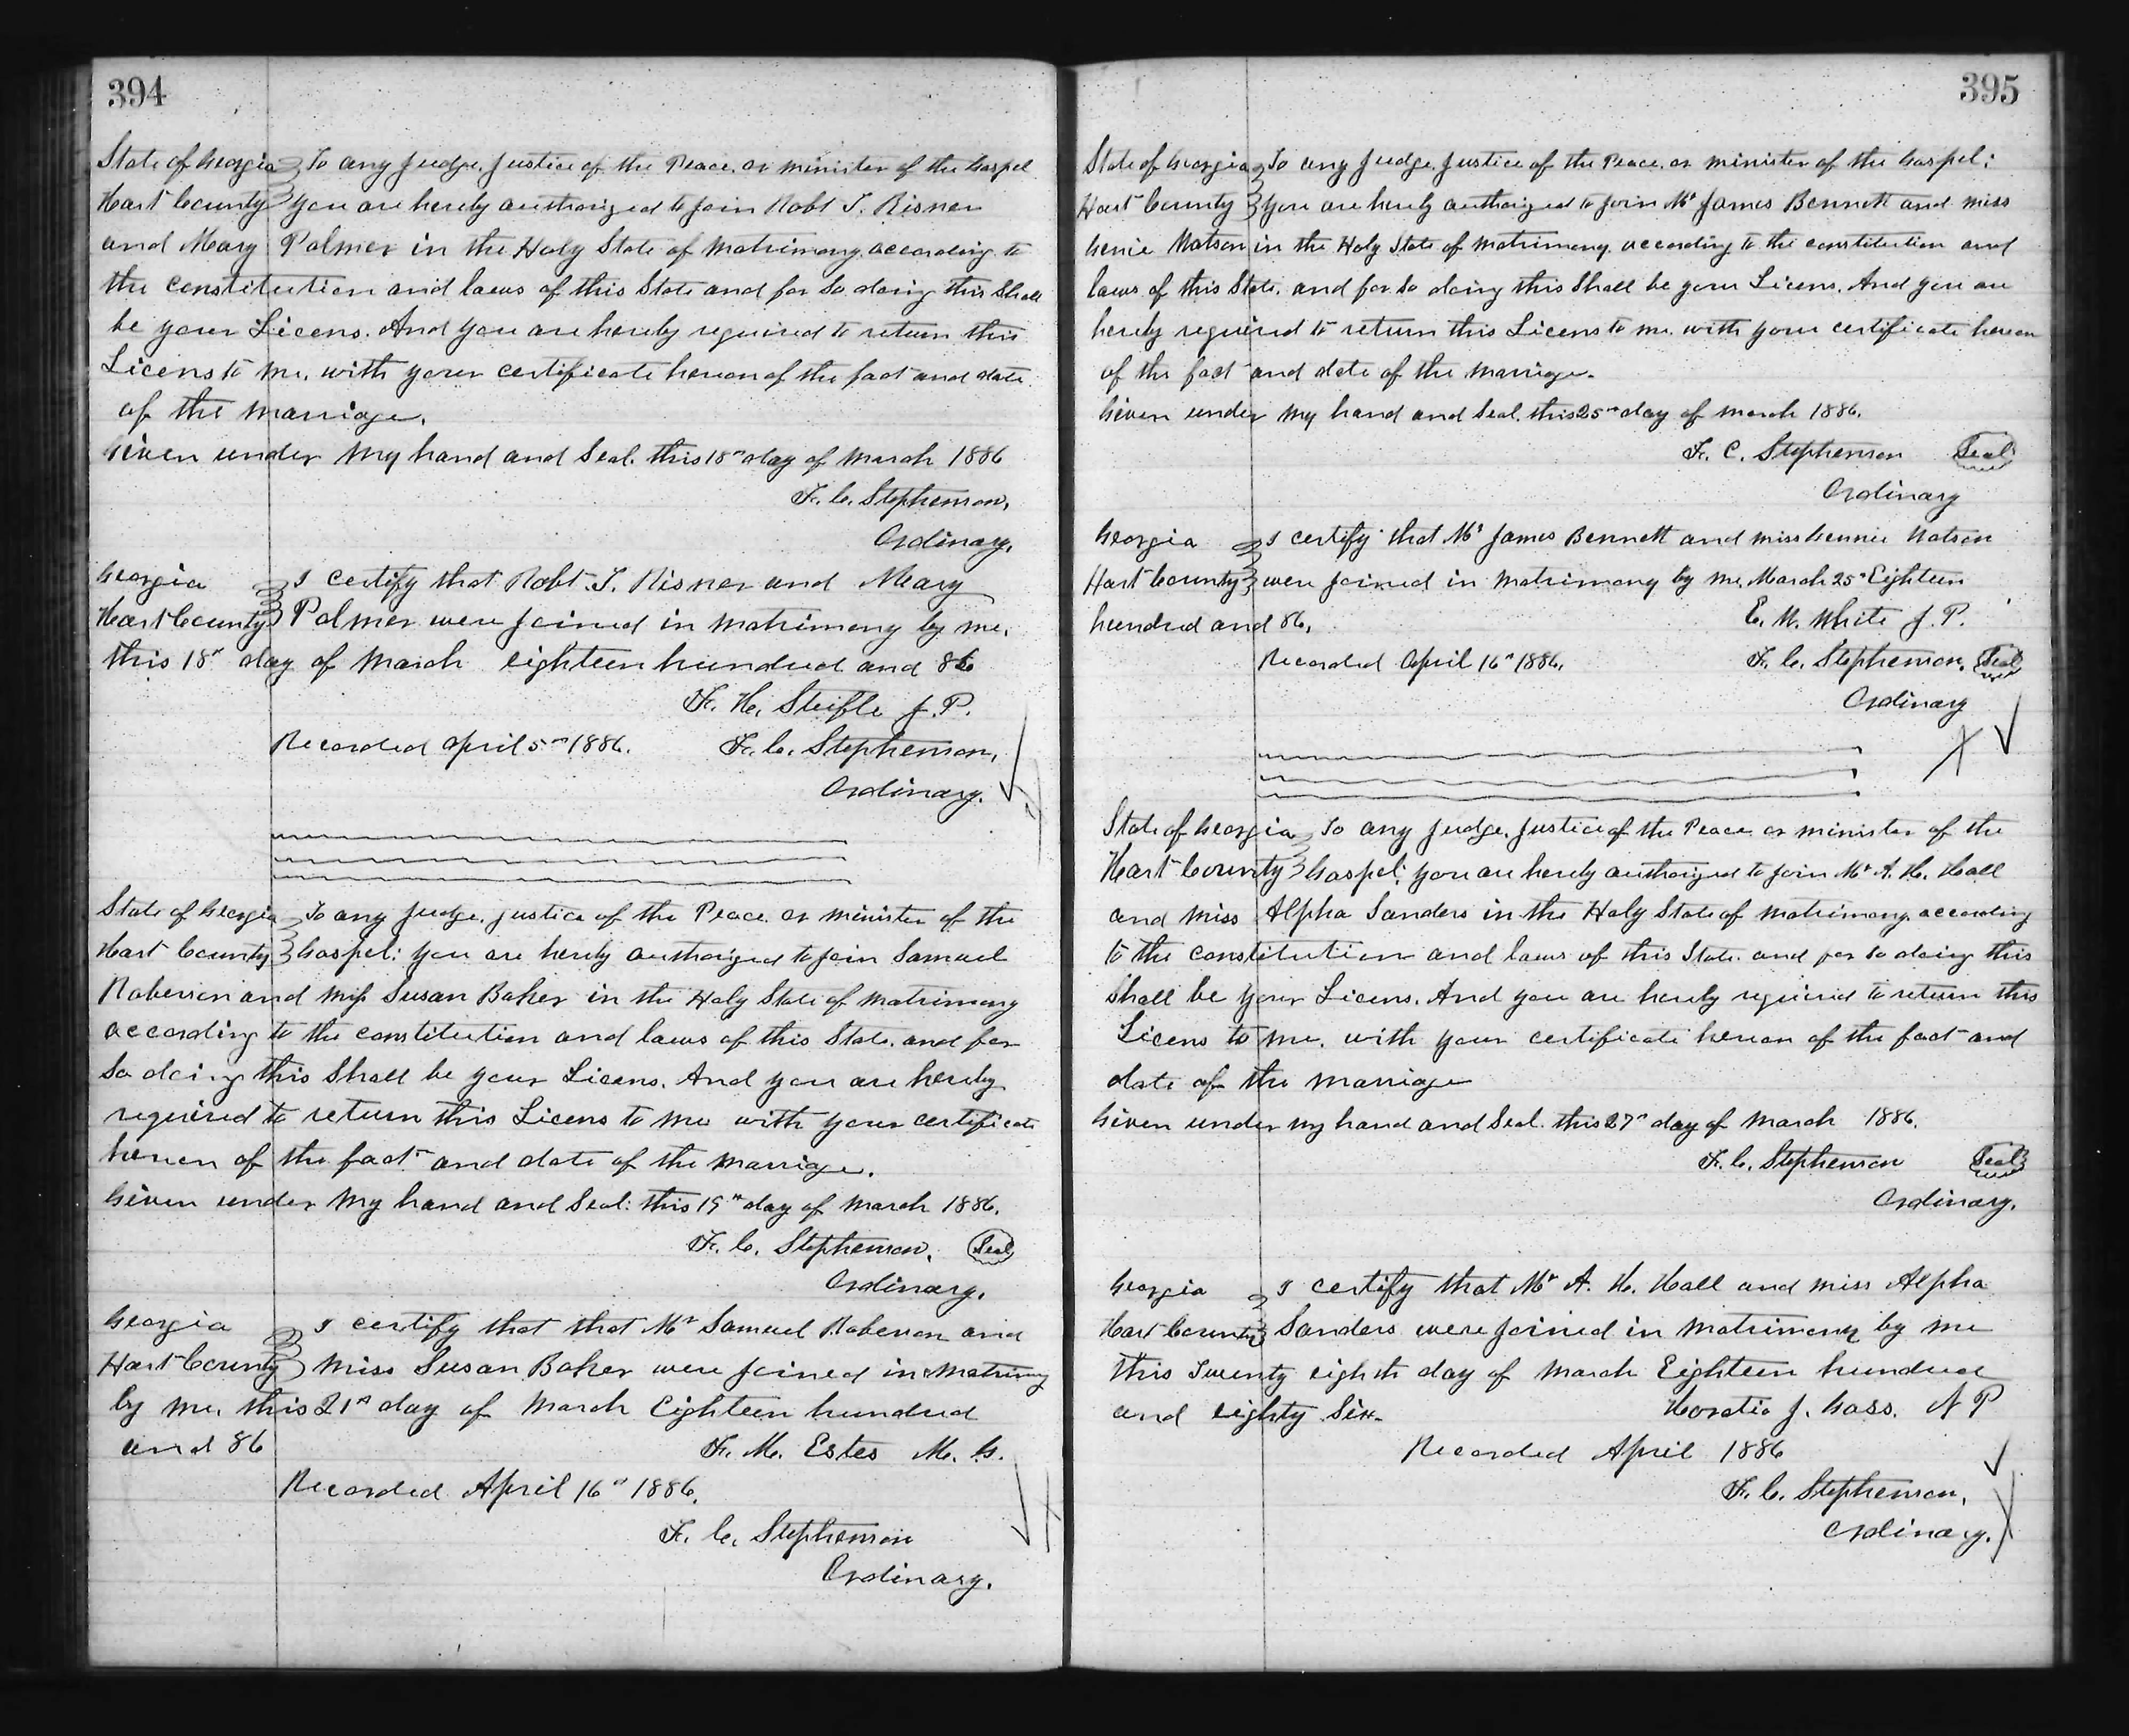 394
State of Georgia To any Judge, Justice of the Peace, or minister of the Gospel
Hart County you are hereby authorized to join Robt T. Risner
and Mary Palmer in the Holy State of matrimony, according to
the constitution and laws of this State and for So doing this Shall
be your Licens. And you are hereby required to return this
Licens to me, with your certificate hereon of the fact and date
of the marriage.
Given under my hand and Seal. this 18th day of March 1886
F. C. Stephenson,
Ordinary.
Georgia I certify that Robt. T. Risner and Mary
Hart County Palmer were joined in matrimony by me,
this 18th day of March eighteen hundred and 86
F. H. Steifle J. P.
Recorded April 5th 1886. F. C. Stephenson,
Ordinary.
State of Georgia To any Judge, justice of the Peace or minister of the
Hart County Gospel: you are hereby authorized to join Samuel
Roberson and miss Susan Baker in the Holy State of matrimony
according to the constitution and laws of this State. and for
So doing this Shall be your Licens. And you are hereby
required to return this Licens to me with your certificate
hereon of the fact and date of the marriage.
Given under my hand and Seal: this 19th day of March 1886.
F. C. Stephenson. Seal
Ordinary.
Georgia I certify that that Mr Samuel Roberson and
Hart County miss Susan Baker were joined in matrimony
by me, this 21st day of March Eighteen hundred
and 86 F. M. Estes M. G.
Recorded April 16th 1886.
F. C. Stephenson
Ordinary.
395
State of Georgia To any Judge, Justice of the Peace, or minister of the Gospel:
Hart County you are hereby authorized to join Mr James Bennett and miss
Genie Watson in the Holy State of matrimony, according to the constitution and
laws of this State, and for So doing this Shall be your Licens. And you are
hereby required to return this Licens to me, with your certificate hereon
of the fact and date of the marriage.
Given under my hand and Seal. this 25th day of March 1886.
F. C. Stephenson Seal
Ordinary
Georgia I certify that Mr James Bennett and miss Gennie Watson
Hart County were joined in matrimony by me, March 25th Eighteen
hundred and 86, E. W. White J. P.
Recorded April 16th 1886. F. C. Stephenson. Seal
Ordinary
State of Georgia To any Judge, Justice of the Peace or minister of the
Hart County Gospel: you are hereby authorized to join Mr A. H. Hall
and miss Alpha Sanders in the Holy State of matrimony, according
to the constitution and laws of this State. and for So doing this
Shall be your Licens. And you are hereby required to return this
Licens to me, with your certificate hereon of the fact and
date of the marriage
Given under my hand and Seal. this 27th day of March 1886.
F. C. Stephenson Seal
Ordinary.
Georgia I certify that Mr A. H. Hall and miss Alpha
Hart County Sanders were joined in matrimony by me
this Twenty eighth day of March Eighteen hundred
and eighty Six. Horatio J. Goss. N P
Recorded April 1886
F. C. Stephenson,
Ordinary.